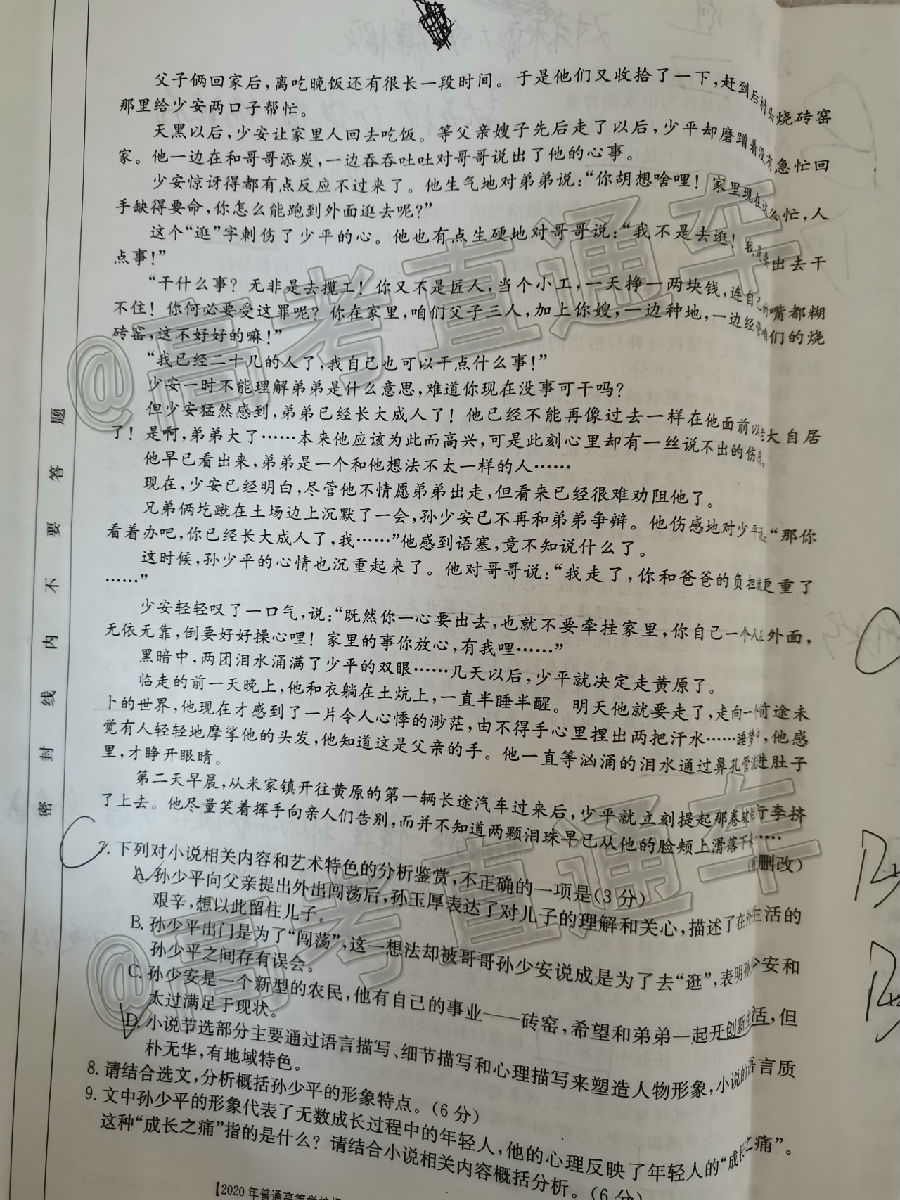 父子俩回家后，离吃晚饭还有很长一段时间。于是他们又收拾了一下，赶到后村头烧砖窑
那里给少安两口子帮忙。
天黑以后，少安让家里人回去吃饭。等父亲嫂子先后走了以后，少平却磨蹭着没有急忙回
家。他一边在和哥哥添炭，一边吞吞吐吐对哥哥说出了他的心事。
少安惊讶得都有点反应不过来了。他生气地对弟弟说：“你胡想啥哩！家里现在这么忙，人
手缺得要命，你怎么能跑到外面逛去呢？”
这个“逛”字刺伤了少平的心。他也有点生硬地对哥哥说：“我不是去逛！我是要出去干
点事！”
“干什么事？无非是去揽工！你又不是匠人，当个小工，一天挣一两块钱，连自己的嘴都糊
不住！你何必要受这罪呢？你在家里，咱们父子三人，加上你嫂，一边种地，一边经管咱们的烧
砖窑，这不好好的嘛！”
“我已经二十几的人了，我自己也可以干点什么事！”
少安一时不能理解弟弟是什么意思，难道你现在没事可干吗？
但少安猛然感到，弟弟已经长大成人了！他已经不能再像过去一样在他面前以老大自居
了！是啊，弟弟大了……本来他应该为此而高兴，可是此刻心里却有一丝说不出的伤感。
他早已看出来，弟弟是一个和他想法不太一样的人……
现在，少安已经明白，尽管他不情愿弟弟出走，但看来已经很难劝阻他了。
兄弟俩圪蹴在土场边上沉默了一会，孙少安已不再和弟弟争辩。他伤感地对少平说：“那你
看着办吧，你已经长大成人了，我……”他感到语塞，竟不知说什么了。
这时候，孙少平的心情也沉重起来了。他对哥哥说：“我走了，你和爸爸的负担就更重了
……”
少安轻轻叹了一口气，说：“既然你一心要出去，也就不要牵挂家里，你自己一个人在外面，
无依无靠，倒要好好操心哩！家里的事你放心，有我哩……”
黑暗中，两团泪水涌满了少平的双眼……几天以后，少平就决定走黄原了。
临走的前一天晚上，他和衣躺在土炕上，一直半睡半醒。明天他就要走了，走向一个前途未
卜的世界，他现在才感到了一片令人心悸的渺茫，由不得手心里捏出两把汗水……睡梦中，他感
觉有人轻轻地摩挲他的头发，他知道这是父亲的手。他一直等汹涌的泪水通过鼻孔管流进肚子
里，才睁开眼睛。
第二天早晨，从米家镇开往黄原的第一辆长途汽车过来后，少平就立刻提起那卷破行李挤
了上去。他尽量笑着挥手向亲人们告别，而并不知道两颗泪珠早已从他的脸颊上滑落下来……
（删改）
7. 下列对小说相关内容和艺术特色的分析鉴赏，不正确的一项是（3分）
A. 孙少平向父亲提出外出闯荡后，孙玉厚表达了对儿子的理解和关心，描述了在外生活的
艰辛，想以此留住儿子。
B. 孙少平出门是为了“闯荡”，这一想法却被哥哥孙少安说成是为了去“逛”，表明孙少安和
孙少平之间存有误会。
C. 孙少安是一个新型的农民，他有自己的事业——砖窑，希望和弟弟一起开创新生活，但
太过满足于现状。
D. 小说节选部分主要通过语言描写、细节描写和心理描写来塑造人物形象，小说的语言质
朴无华，有地域特色。
8. 请结合选文，分析概括孙少平的形象特点。（6分）
9. 文中孙少平的形象代表了无数成长过程中的年轻人，他的心理反映了年轻人的“成长之痛”。
这种“成长之痛”指的是什么？请结合小说相关内容概括分析。（6分）
【2020年普通高等学校
密封线内不要答题
@高考直通车
@高考直通车